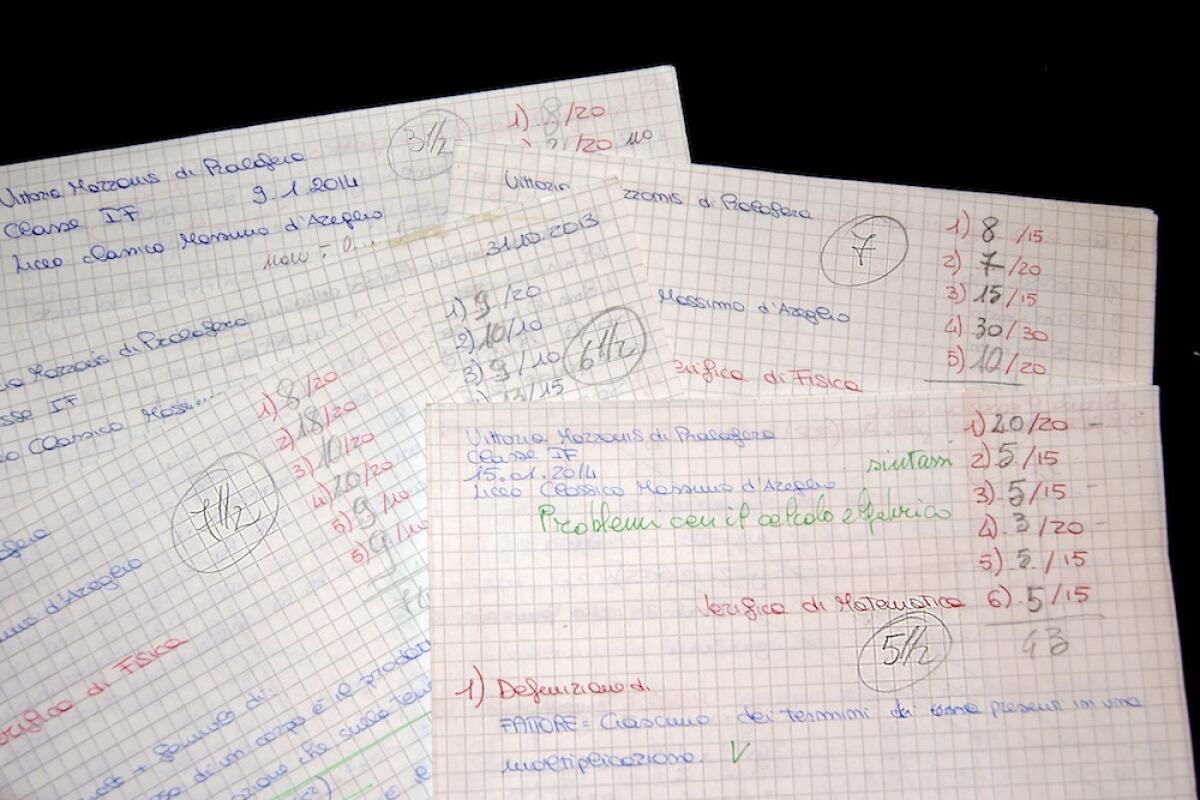 1) 8/20
3 1/2
/20 no
Vittoria Mazzonis di Pralafera
9.1.2014
Classe IF
Liceo Classico Massimo d'Azeglio
Vittoria
zzonis di Pralafera
7
1) 8 /15
2) 7/20
3) 15/15
4) 30/30
5) 10/20
Massimo d'Azeglio
erifica di Fisica
31.10.2013
1) 9/20
2) 10/10
3) 9/10
13/15
6 1/2
Mazzonis di Pralafera
sse IF
Classico Mass
1) 8/20
2) 18/20
3) 10/20
4) 20/20
5) 9/10
5) 9/10
7 1/2
d'Azeglio
di Fisica
di:
di un corpo è il prodo
che
Vittoria Mazzonis di Pralafera
Classe IF
15.01.2014
Liceo Classico Massimo d'Azeglio
sintassi
Problemi con il calcolo algebrico
1) 20/20 -
2) 5/15
3) 5/15 -
4) 3/20 -
5) 5/15
6) 5/15
43
Verifica di Matematica
5 1/2
1) Definizione di
FATTORE = Ciascuno dei termini di present in una
moltiplicazione. V